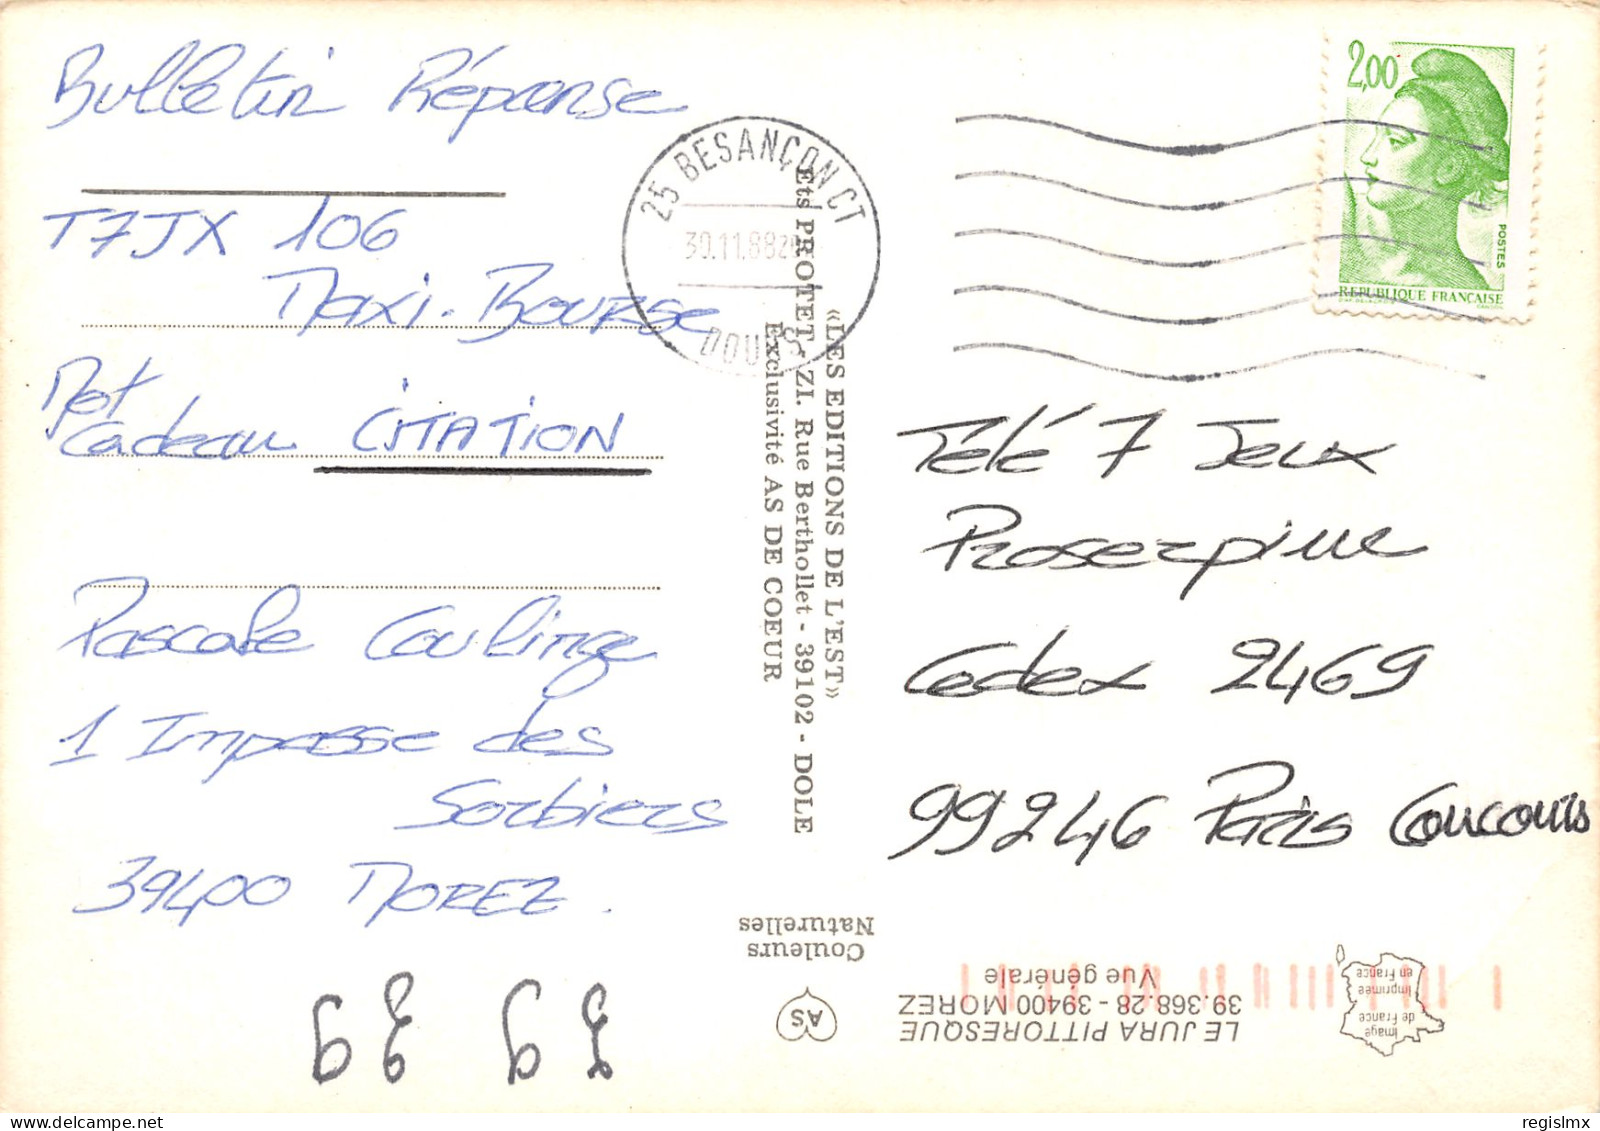 Bulletin Réponse
T7JX 106
Maxi-Bourse
Mot
Cadeau CITATION
Pascale Coulinge
1 Impasse des
Sorbiers
39400 MOREZ.
25 BESANÇON CT
30.11.88
DOUBS
«LES EDITIONS DE L'EST»
Ets PROTET - ZI. Rue Berthollet - 39102 - DOLE
Exclusivité AS DE COEUR
2,00
POSTES
REPUBLIQUE FRANÇAISE
Télé 7 Jeux
Proserpine
Cedex 2469
99246 Paris Concours
Couleurs
Naturelles
AS
LE JURA PITTORESQUE
39.368.28 - 39400 MOREZ
Vue générale
Image
de France
Imprimée
en France
39 39
regislmx